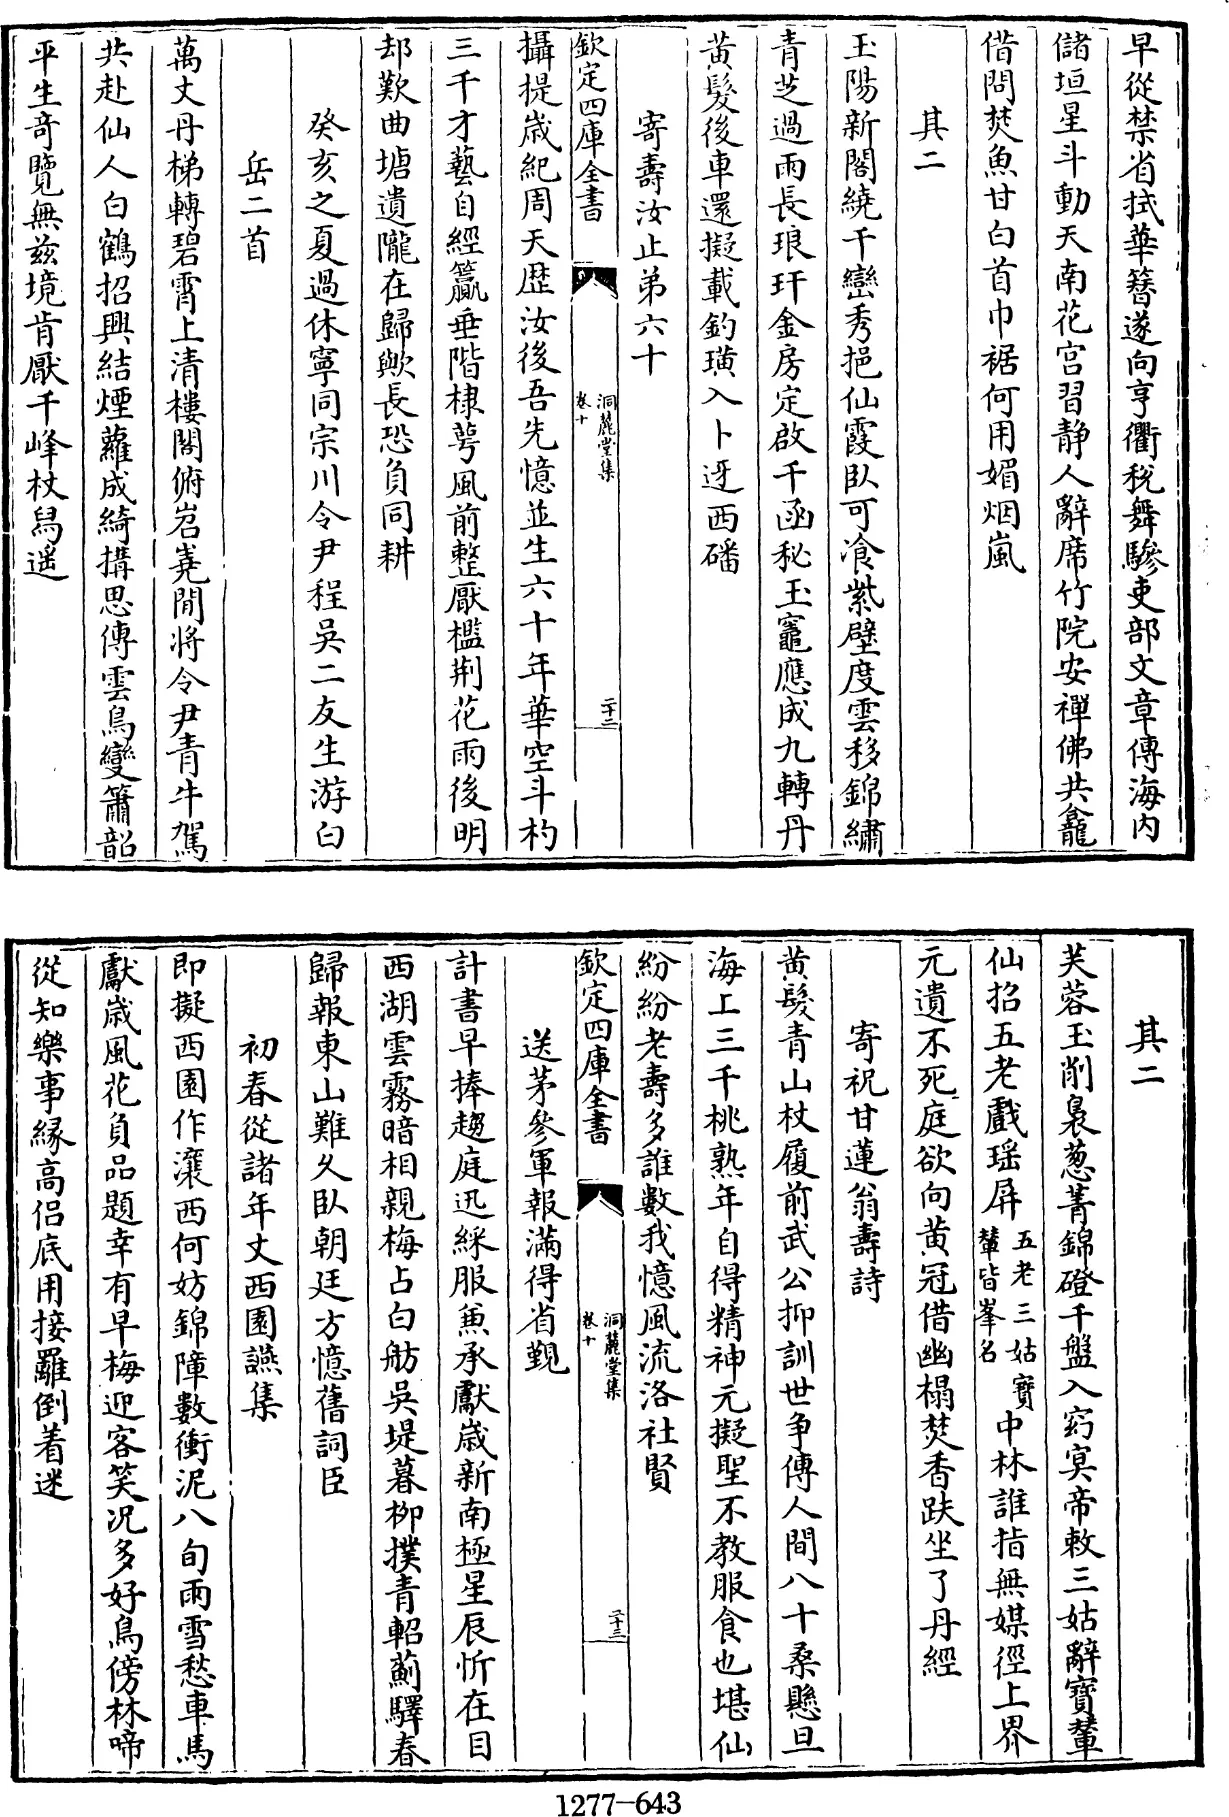 早從禁省拭華簪遂向亨衢稅舞驂吏部文章傳海内
儲垣星斗動天南花宫習静人辭席竹院安禪佛共龕
借問焚魚甘白首巾裾何用媚烟嵐
其二
玉陽新閣繞千巒秀挹仙霞臥可飡紫壁度雲移錦繡
青芝過雨長琅玕金房定啟千函秘玉竈應成九轉丹
黄髮後車還擬載釣璜入卜迓西磻
寄壽汝止弟六十
欽定四庫全書
洞麓堂集
卷十
二十二
攝提歳紀周天歴汝後吾先憶並生六十年華空斗杓
三千才藝自經籯垂階棣萼風前整厭檻荆花雨後明
却歎曲塘遺隴在歸歟長恐負同耕
癸亥之夏過休寧同宗川令尹程吳二友生游白
岳二首
萬丈丹梯轉碧霄上清樓閣俯岧嶤閒將令尹青牛駕
共赴仙人白鶴招興結煙蘿成綺構思傳雲鳥變簫韶
平生竒覽無兹境肯厭千峰杖舄遥
其二
芙蓉玉削裊葱菁錦磴千盤入窈冥帝敕三姑辭寶輦
仙招五老戲瑶屏五老三姑寶輦皆峯名中林誰指無媒徑上界
元遺不死庭欲向黄冠借幽榻焚香趺坐了丹經
寄祝甘蓮翁壽詩
黄髮青山杖履前武公抑訓世争傳人間八十桑懸旦
海上三千桃熟年自得精神元擬聖不教服食也堪仙
紛紛老壽多誰數我憶風流洛社賢
欽定四庫全書
洞麓堂集
卷十
二十三
送茅參軍報滿得省覲
計書早捧趨庭迅綵服兼承獻歳新南極星辰忻在目
西湖雲霧暗相親梅占白舫吳堤暮柳撲青軺薊驛春
歸報東山難久臥朝廷方憶舊詞臣
初春從諸年丈西園讌集
即擬西園作瀼西何妨錦障數衝泥八旬雨雪愁車馬
獻歳風花負品題幸有早梅迎客笑况多好鳥傍林啼
從知樂事縁高侣底用接䍦倒着迷
1277-643